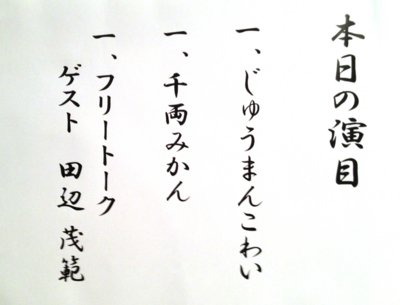 本日の演目
一、じゅうまんこわい
一、千両みかん
一、フリートーク
ゲスト 田辺 茂範